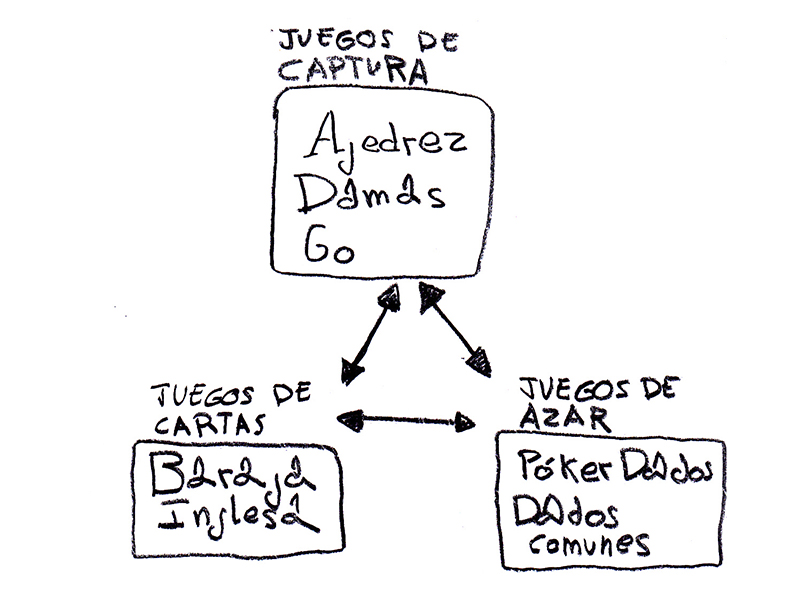 JUEGOS DE
CAPTURA
Ajedrez
Damas
Go
JUEGOS DE
CARTAS
Baraja
Inglesa
JUEGOS DE
AZAR
Póker DAdos
DAdos
comunes